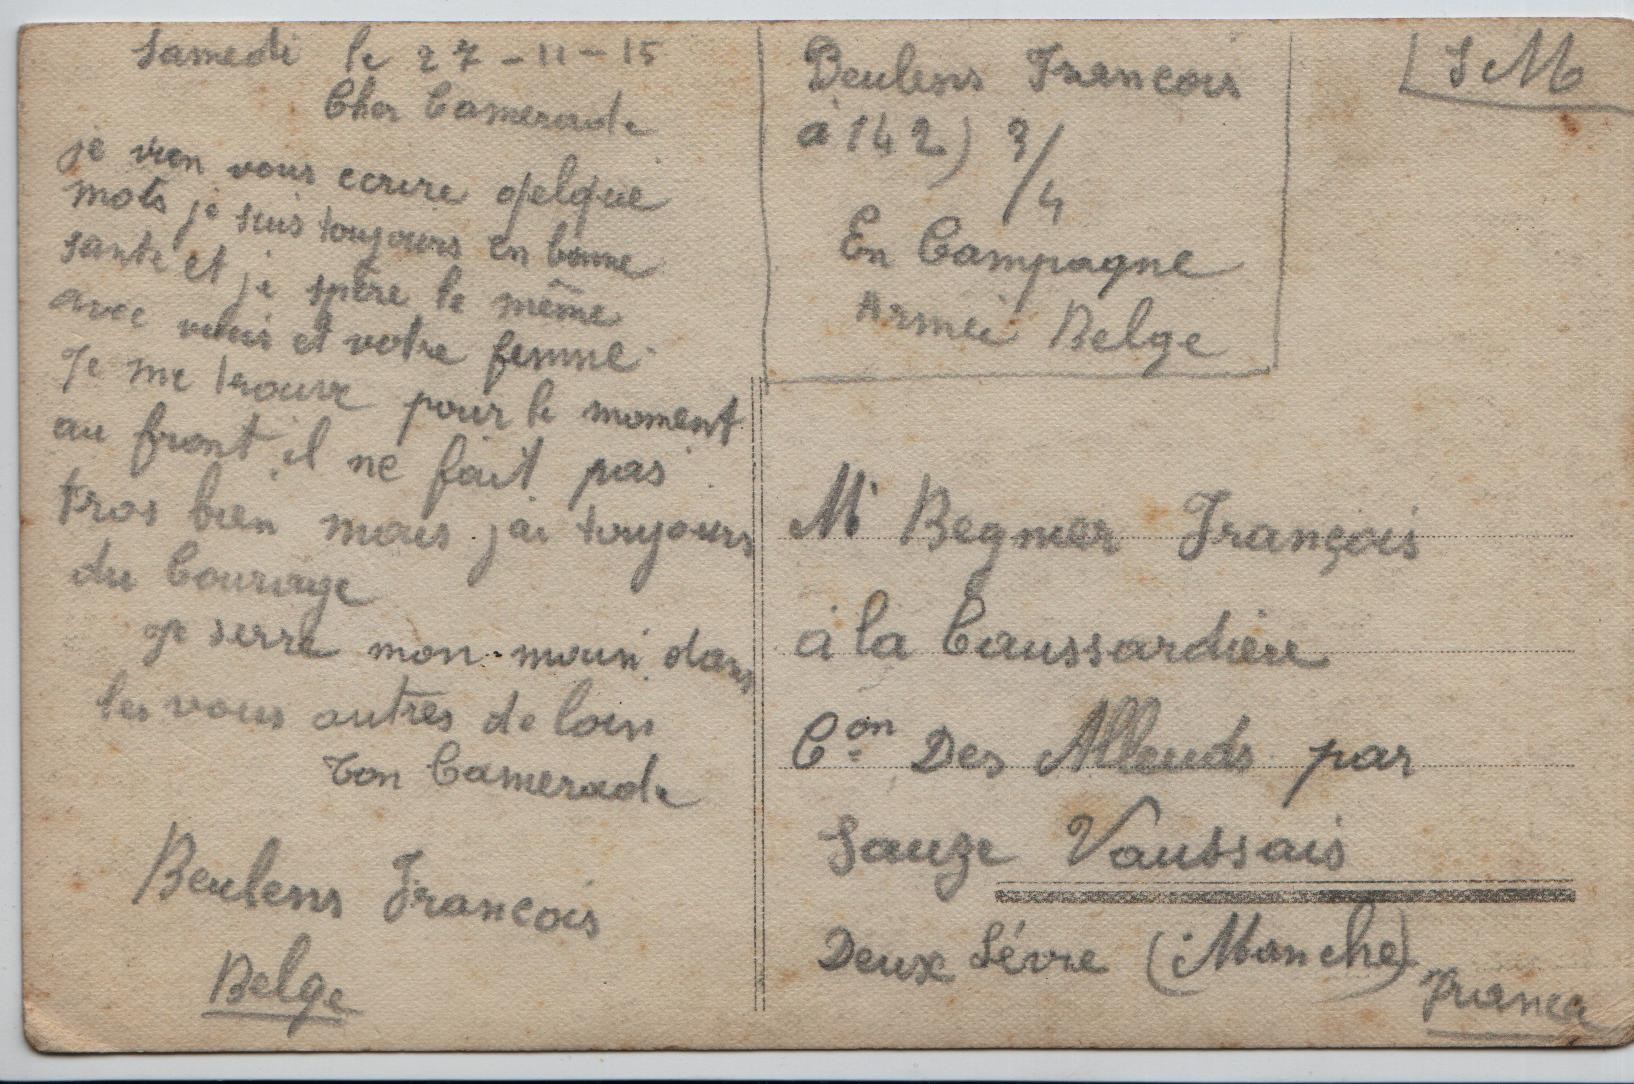 Samedi le 27-11-15
Cher Camerade
je vien vous ecrire qelque
mots je suis toujours en bonne
sante et je spère le même
avec vous et votre femme
Je me trouve pour le moment
au front il ne fait pas
tros bien mais jai toujours
du Courage
Je serre mon main dans
les vous autres de loin
Ton Camerade
Beulens Francois
Belge
Beulens Francois
à 142) 3/4
En Campagne
Armée Belge
SM
Mr Begnier François
à la Caussardière
Con Des Alleuds par
Sauze Vaussais
Deux Sévre (Manche)
France